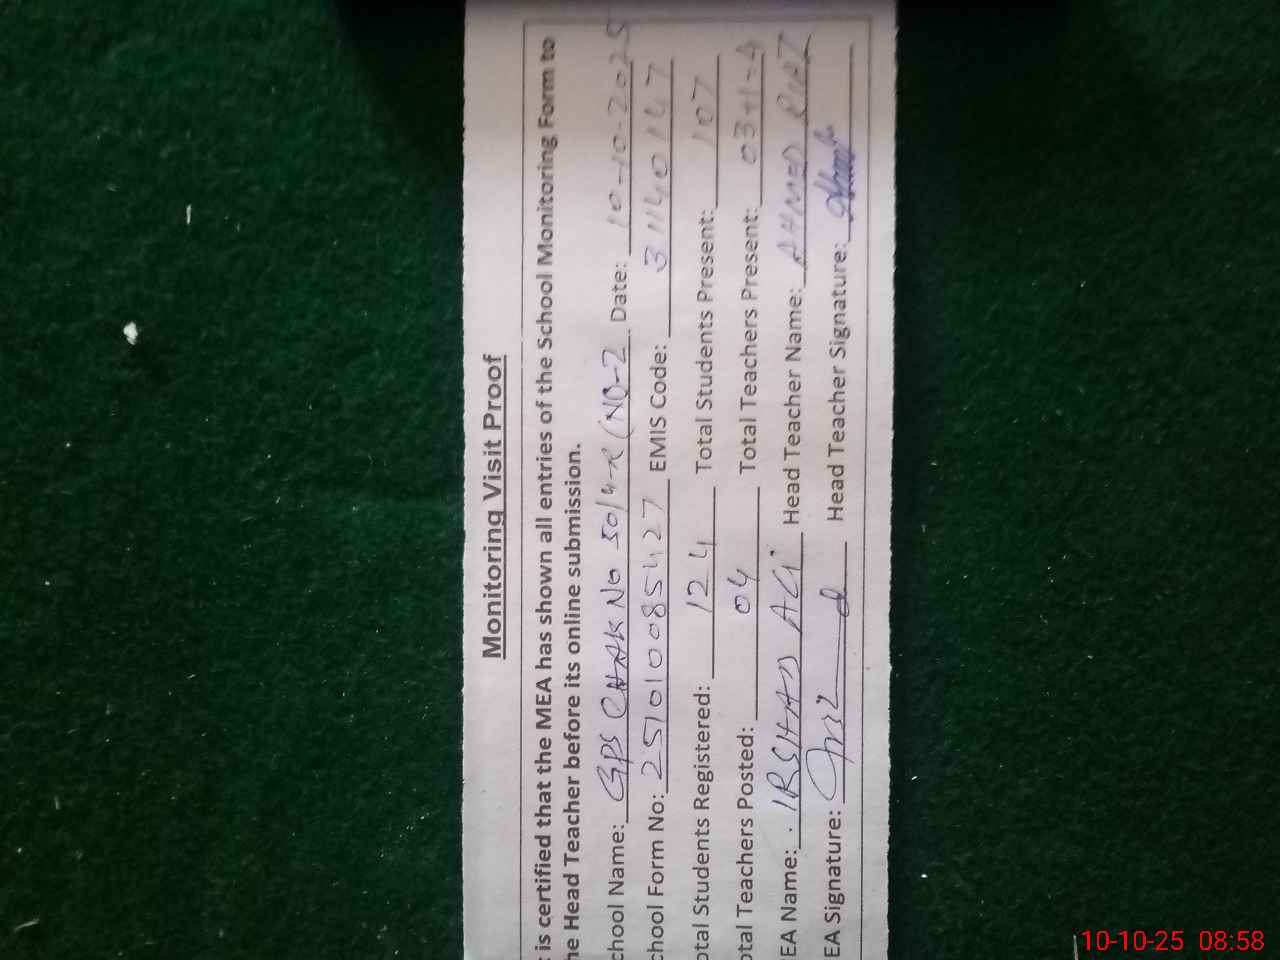 Monitoring Visit Proof
t is certified that the MEA has shown all entries of the School Monitoring Form to
he Head Teacher before its online submission.
chool Name: GPS CHAK No 50/4-R (NO-2 Date: 10-10-2025
chool Form No: 2510100085427 EMIS Code: 31140147
otal Students Registered: 124 Total Students Present: 107
otal Teachers Posted: 04 Total Teachers Present: 03+1=4
EA Name: IRSHAD ALi Head Teacher Name: AHMED
EA Signature: Head Teacher Signature:
10-10-25 08:58